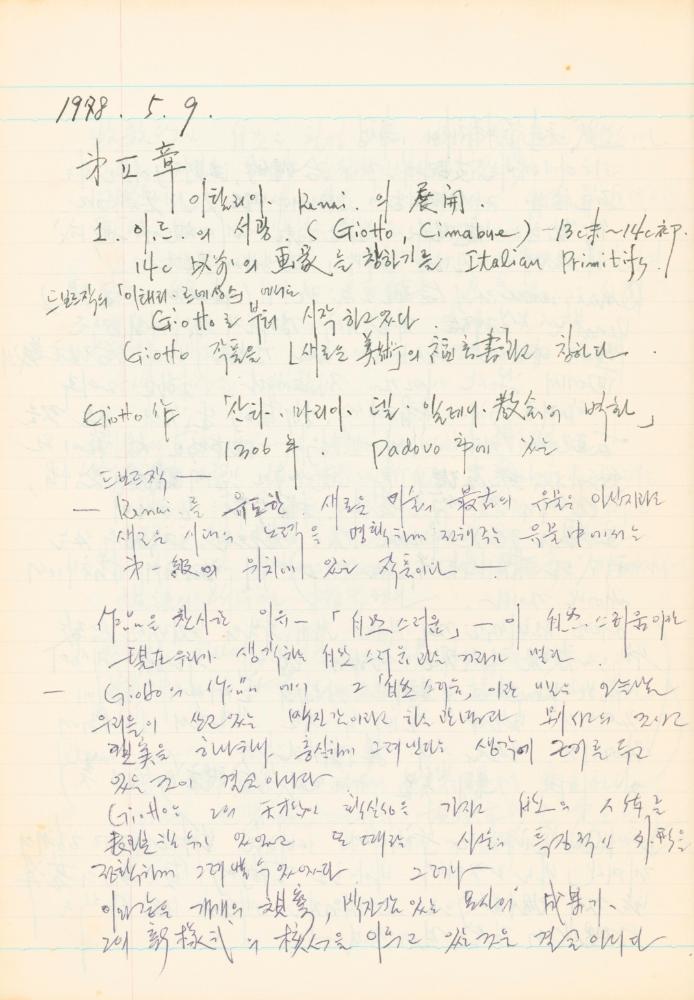 1978. 5. 9.
第Ⅱ章
이탈리아. Renai. 의 展開.
1. 이.르. 의 서광. (Giotto, Cimabue) -13c末~14c初.
14c 以前의 画家를 칭하기를 Italian Primitifs.
드보르작의 「이태리.르네상스」 에서는
Giotto로 부터 시작하고있다.
Giotto 작품을 「새로운 美術」의 福音書라고 칭하다.
Giotto 作 「산타.마리아.델.아레나.敎会의 벽화」
1306年. Padovo 市에 있는
드보르작 —
— Renai.를 유도한 새로운 미술, 最古의 유물은 아닐지라도
새로운 시대의 노력을 명확하게 전해주는 유물中에서는
第一級의 위치에 있는 작품이다 —.
作品을 찬사한 이유 — 「自然스러운」 — 이 自然스러움이란
現在우리가 생각하는 自然스러운과는 거리가 멀다.
— Giotto의 作品에서 그 「自然스러움」 이란 것은 오늘날
우리들이 박진감이라고 하는
現実을 하나하나 충실하게 그려낸다는 생각에 근거를 두고
있는 것이 결코 아니다
Giotto는 그의 天才的 확실성을 가지고 自然의
表現할수 있었고 또 때로는 사물의 특징적인 外形을
정확하게 그려낼수 있었다 그러나
이와같은 개개의 視覺, 박진감있는 묘사의 成果가.
그의 新樣式의 核心을 이루고 있는것은 결코 아니다